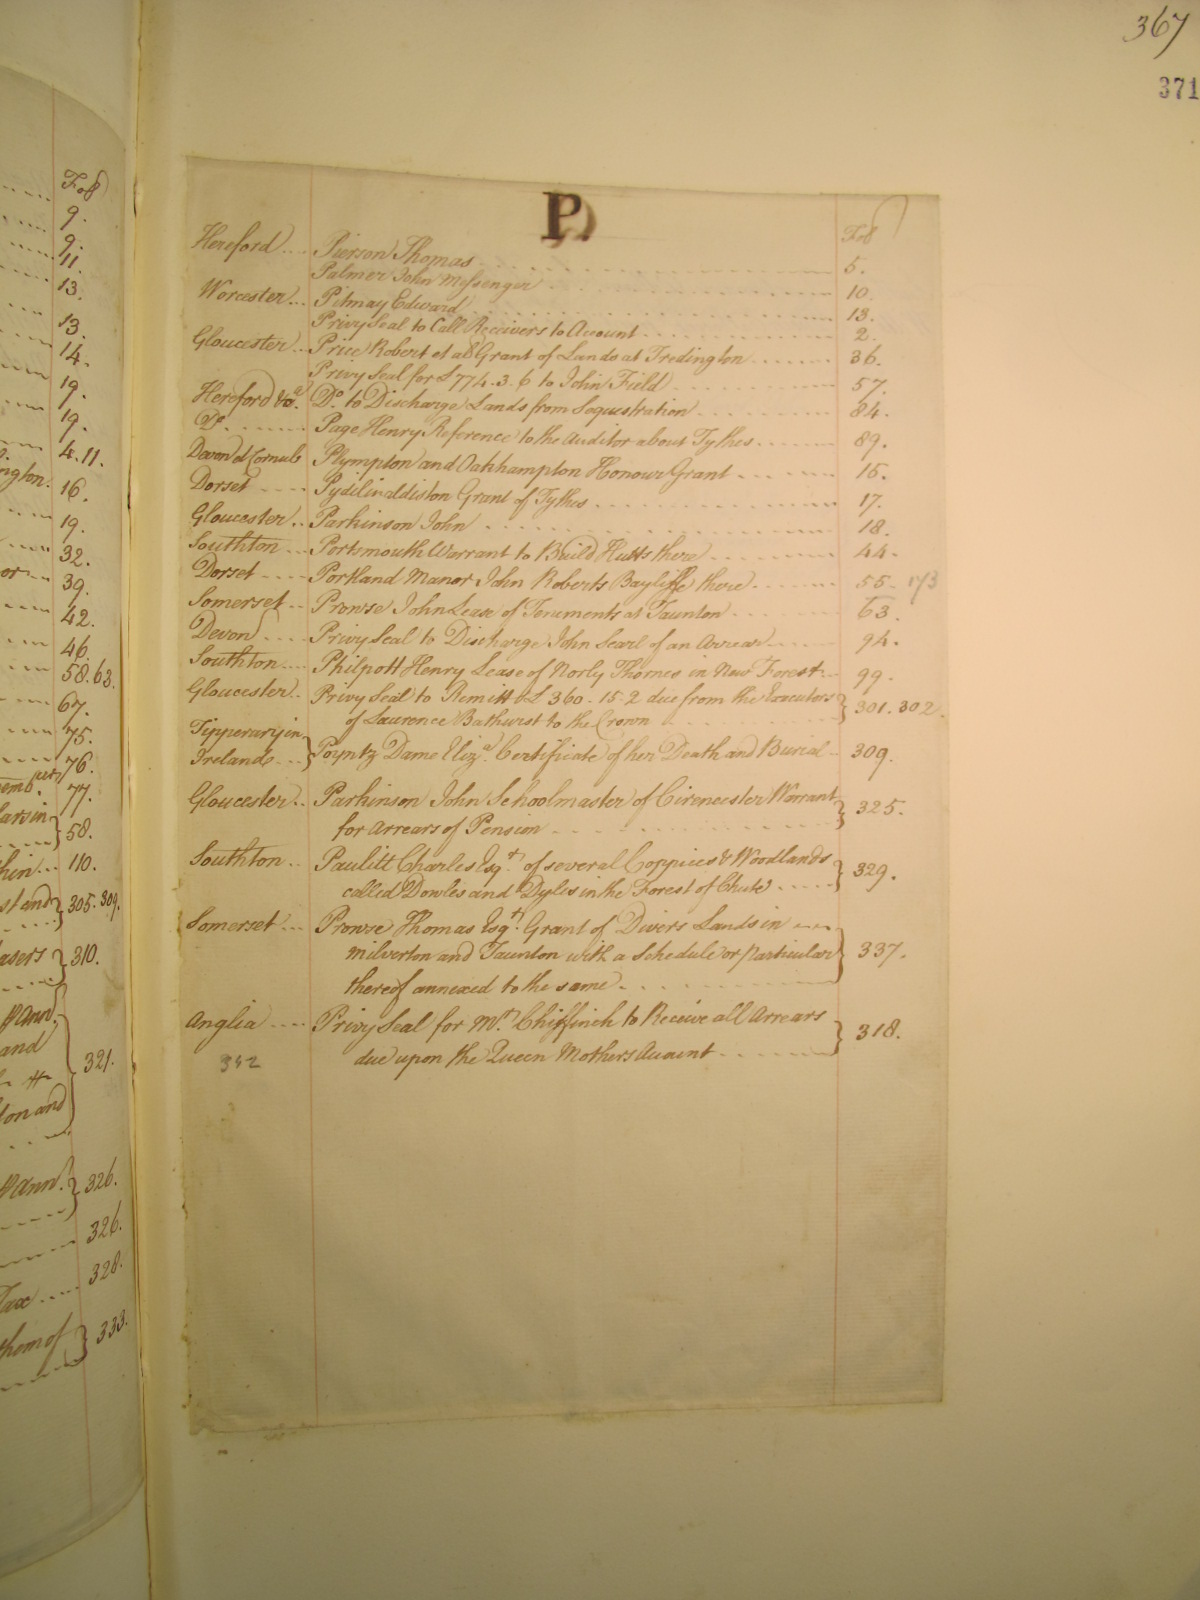 367
371
P.
Fol
Hereford .... Pierson Thomas 5.
Palmer John Messenger 10
Worcester... Pitmay Edward 13.
Privy Seal to Call Receivers to Account 2.
Gloucester.. Price Robert et al Grant of Lands at Tredington 36.
Privy Seal for £774.3.6 to John Field 57.
Hereford &ca. Do. to Discharge Lands from Sequestration 84.
Do. Page Henry Reference to the Auditor about Tythes 89.
Devon et Cornub Plympton and Oakhampton Honour Grant 15.
Dorset .... Grant of Tythes 17.
Gloucester.. Parkinson John 18.
Southton ... Portsmouth Warrant to Build Hutts there 44.
Dorset .... Portland Manor John Roberts Bayliffe there 55. 173
Somerset.. Prowse John Lease of Tenements at Taunton 63.
Devon .... Privy Seal to Discharge John Searl of an Arrear 94.
Southton.... Philpott Henry Lease of Norly Thornes in New Forest 99.
Gloucester. Privy Seal to Remitt £360.15.2 due from the Executors
of Laurence Bathurst to the Crown 301.302.
Tipperary in
Ireland... Poyntz Dame Eliza. Certificate of her Death and Burial 309.
Gloucester.. Parkinson John Schoolmaster of Cirencester Warrant
for Arrears of Pension 325.
Southton .. Paulitt Charles Esqr. of several Coppices & Woodlands
called Dowles and Dyles in the Forest of Chute 329.
Somerset ... Prowse Thomas Esqr. Grant of Divers Lands in
Milverton and Taunton with a Schedule or Particular 337.
thereof annexed to the same
Anglia .... Privy Seal for Mr. Chiffinch to Receive all Arrears
due upon the Queen Mothers Account 318.
342
Fol
9.
9.
11.
13.
13.
14.
19.
19.
4.11.
16.
19.
32.
39.
42.
46.
58.63.
67.
75.
76.
77.
58.
110.
305.309.
310.
321.
326.
326.
328.
333.